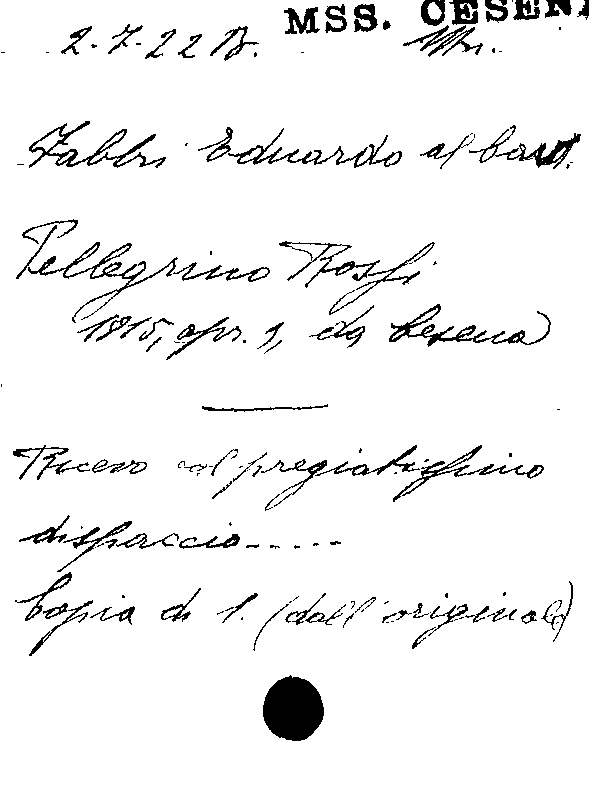 MSS. CESEN
2-7-22 B.
Fabbri Eduardo al
Pellegrino Rossi
1815, apr. 9, da Cesena
Ricevo col pregiatissimo
dispaccio.....
Copia di l. (dall'originale)